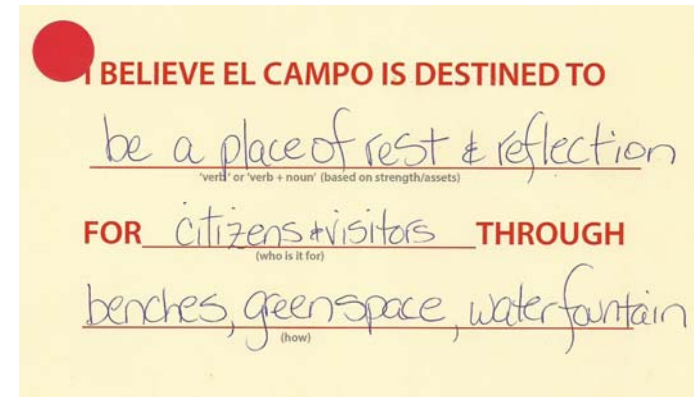 I BELIEVE EL CAMPO IS DESTINED TO
be a place of rest & reflection
'verb' or 'verb + noun' (based on strength/assets)
FOR citizens & visitors THROUGH
(who is it for)
benches, greenspace, water fountain
(how)